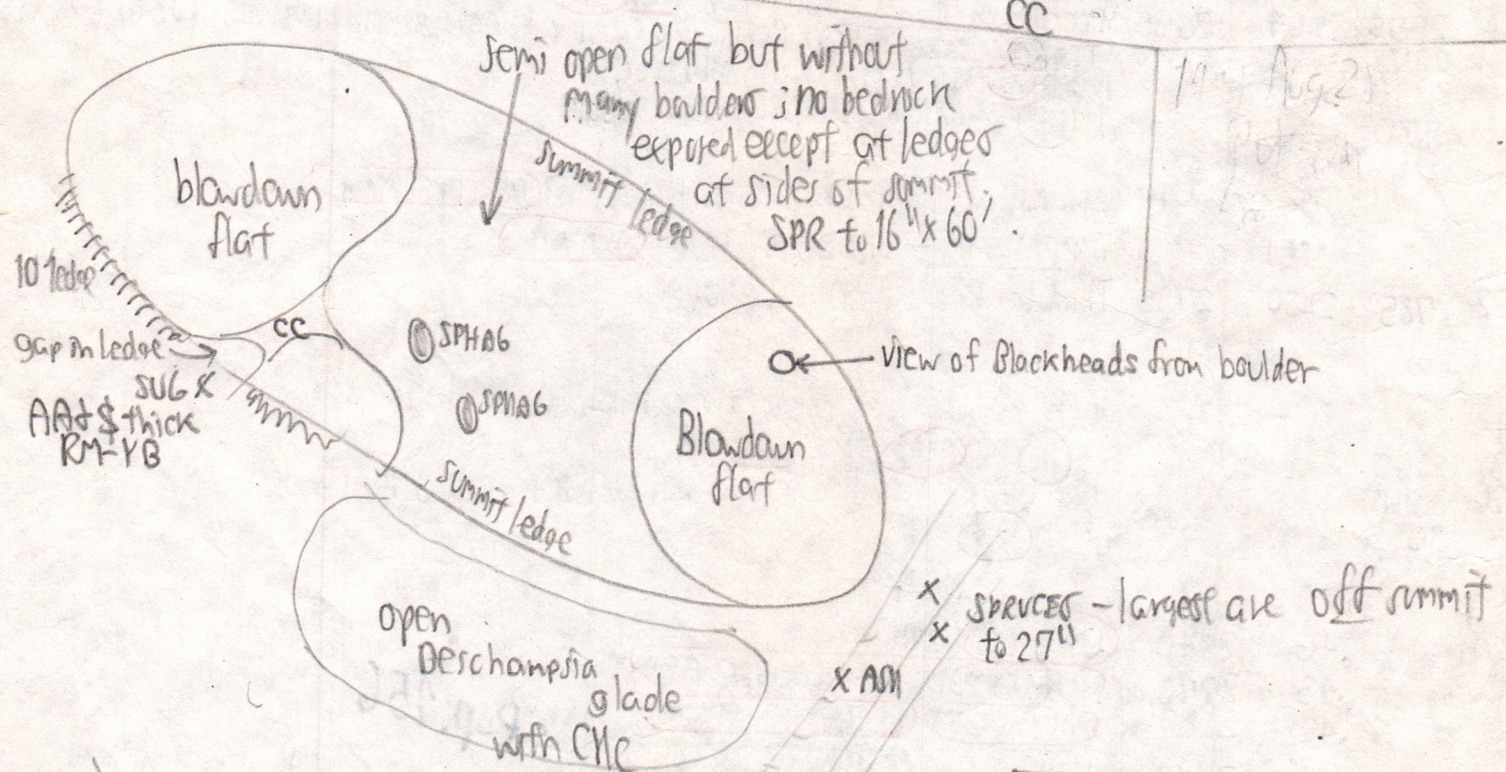 CC
semi open flat but without
many boulders ; no bedrock
exposed except at ledges
at sides of summit.
SPR to 16" x 60'.
summit ledge
blowdown
flat
10' ledge
gap in ledge
CC
SUG X
thick
RM-YB
SPHAG
SPHAG
view of Blackheads from boulder
Blowdown
flat
summit ledge
open
Deschampsia
glade
with
X
X
SPRUCES - largest are off summit
to 27"
X ASH
Aug 21